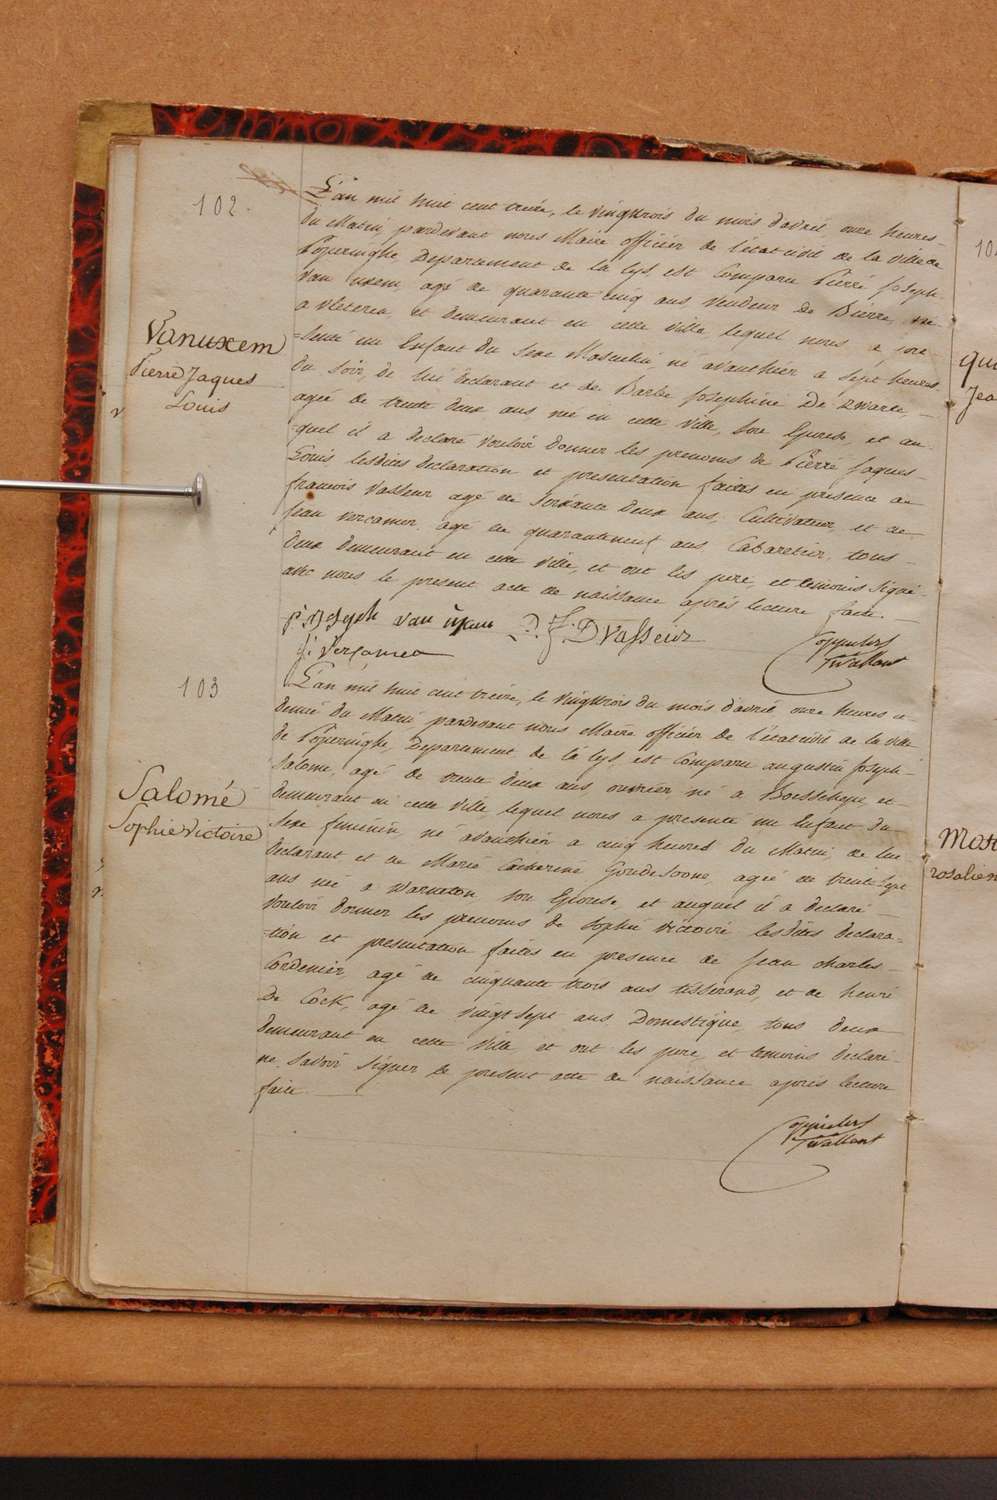 102.
L'an mil huit cent treize, le vingttrois du mois d'avril onze heures
du Matin, pardevant nous Maire officier de l'état civil de la ville de
Poperinghe Departement de la Lys, est Comparu Pierre Joseph
Van uxem, agé de quarante cinq ans Vendeur de Bierre, né
a Vleteren et demeurant en cette ville, lequel nous a pre-
=senté un Enfant du Sexe Masculin, né avanthier a Sept heures
Vanuxem
Pierre Jaques
Louis
du Soir, de lui declarant et de Barbe Josephine De Zwarte,
agée de trente deux ans née en cette Ville, Son Epouse, et au-
-quel il a declaré vouloir donner les prenoms de Pierre Jaques
Louis lesdites declaration et presentation faites en presence de
francois Vasseur agé de Soixante deux ans, Cultivateur, et de
Jean Vercamer, agé de quaranteneuf ans, Cabaretier, tous
deux demeurant en cette ville, et ont les pere, et temoins Signé
avec nous le present acte de naissance après lecture faite.
p: Joseph van uxem P. F: DVasseur
J: Vercamer
103
L'an mil huit cent treize, le vingttrois du mois d'avril onze heures et
demie du Matin, pardevant nous Maire officier de l'état civil de la ville
de Poperinghe, Departement de la Lys, est Comparu augustin Joseph
Salomé, agé de trente deux ans ouvrier né a Boesschepe, et
demeurant en cette Ville, lequel nous a presenté un Enfant du
Salomé
Sophie Victoire
Sexe feminin, né avanthier a cinq heures du Matin, de lui
declarant et de Marie Catherine agée de trente Sept
ans née a Warneton, son Epouse, et auquel il a declaré
vouloir donner les prenoms de Sophie Victoire lesdites declara-
=tion et presentation faites en presence de Jean Charles
Cordenier, agé de cinquante trois ans tisserand, et de henri
De Cock, agé de vingt Sept ans Domestique, tous deux
demeurant en cette Ville et ont les pere, et temoins declaré
ne Savoir Signer le present acte de naissance après lecture
faite.